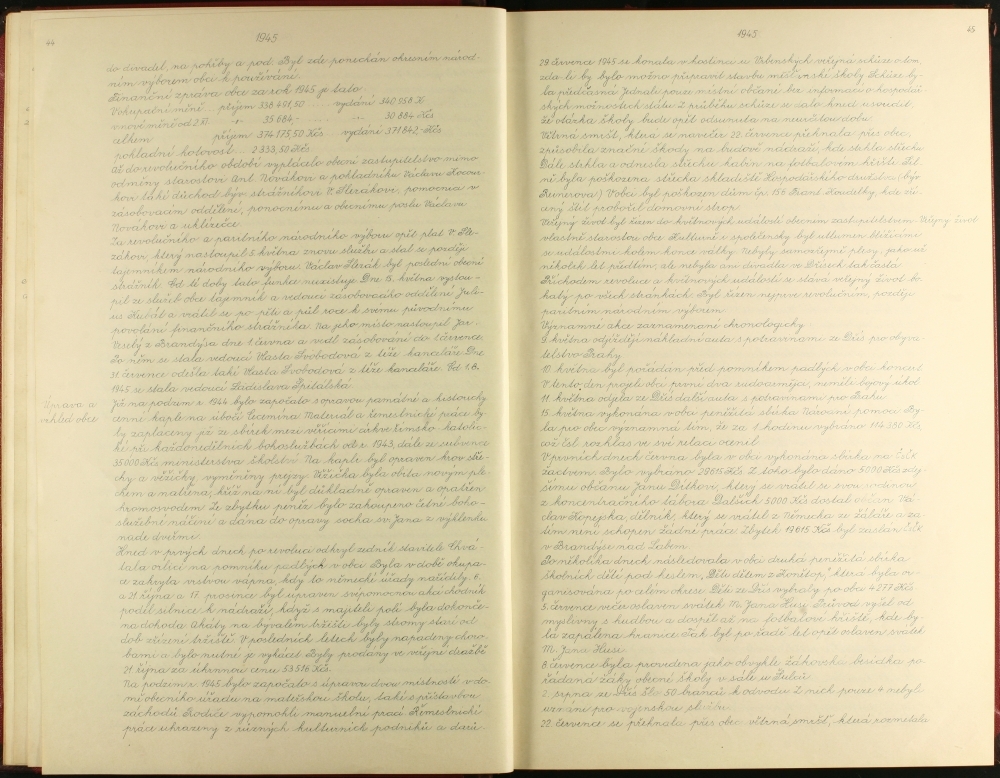 44
1945
do divadel, na pohřby a pod. Byl zde ponechán okresním národ-
ním výborem obci k používání.
Finanční zpráva obce za rok 1945 je tato:
V okupační měně příjem 338.491,50 vydání 340.958 K
v nové měně od 2.XI. 35.684,- 30.884 Kčs
celkem příjem 374.175,50 Kčs vydání 371.842,- Kčs
pokladní hotovost 2.333,50 Kčs
Až do revolučního období vyplácelo obecní zastupitelstvo mimo
odměny starostovi Ant. Novákovi a pokladníku Václavu Kocour-
kovi také důchod býv. strážníkovi V. Sterákovi, pomocnici v
zásobovacím oddělení, ponocnému a obecnímu poslu Václavu
Novákovi a uklízečce.
Za revolučního a paritního národního výboru zpět plat V. Ste-
rákovi, který nastoupil 5. května znovu službu a stal se později
tajemníkem národního výboru. Václav Sterák byl poslední obecní
strážník. Od té doby tato funkce neexistuje. Dne 15. května vystou-
pil ze služeb obce tajemník a vedoucí zásobovacího oddělení Juli-
us Kubát a vrátil se po pěti a půl roce k svému původnímu
povolání finančního strážníka. Na jeho místo nastoupil Jar.
Veselý z Brandýsa dne 1. června a vedl zásobování do 1. července.
Po něm se stala vedoucí Vlasta Svobodová z téže kanceláře. Dne
31. července odešla také Vlasta Svobodová z téže kanceláře. Od 1.8.
1945 se stala vedoucí Ladislava Špitálská.
Úprava a
vzhled obce
Již na podzim r. 1944 bylo započato s opravou památné a historicky
cenné kaple na návsi Cecemína. Materiál a řemeslnické práce by-
ly zaplaceny již ze sbírek mezi věřícími církve římsko-katolic-
ké při každonedělních bohoslužbách od r. 1943, dále ze subvence
35.000 Kčs ministerstva školství. Na kapli byl opraven krov stře-
chy a věžičky vyměněny prejzy. Věžička byla obita novým ple-
chem a natřena, kříž na ní byl důkladně opraven a opatřen
hromosvodem. Ze zbytku peněz bylo zakoupeno četné boho-
služební náčiní a dána do opravy socha sv. Jana z výklenku
nade dveřmi.
Hned v prvých dnech po revoluci odkryl zedník stavitele Chvá-
tala orlici na pomníku padlých v obci. Byla v době okupa-
ce zakryta vrstvou vápna, kdy to německé úřady nařídily. 6.
a 21. října a 17. prosince byl upraven svépomocnou akcí chodník
podél silnice k nádraží, když s majiteli polí byla dokonče-
na dohoda. Akáty na bývalém tržišti byly stromy staré od
dob zřízení tržiště. V posledních letech byly napadeny choro-
bami a bylo nutné je vykácet. Byly prodány ve veřejné dražbě
21. října za úhrnnou cenu 53.516 Kčs.
Na podzim r. 1945 bylo započato s úpravou dvou místností v do-
mě obecního úřadu na mateřskou školu, také s přístavbou
záchodů. Rodiče vypomohli manuelní prací. Řemeslnické
práce uhrazeny z různých kulturních podniků a darů.
1945
45
29. července 1945 se konala v hostinci u Vrbenských veřejná schůze o tom,
zda-li by bylo možno připravit stavbu měšťanské školy. Schůze by-
la předčasná. Jednali pouze místní občané bez informací o hospodář-
ských možnostech státu. Z průběhu schůze se dalo hned usoudit,
že otázka školy bude opět odsunuta na neurčitou dobu.
Větrná smršť, která se navečer 22. července přehnala přes obec,
způsobila značné škody na budově nádraží, kde strhla střechu.
Dále strhla a odnesla střechu kabin na fotbalovém hřišti. Sil-
ně byla poškozena střecha skladiště Hospodářského družstva (býv.
). V obci byl poškozen dům čp. 156 Frant. Houdilky, kde zří-
cený štít probořil domovní strop.
Veřejný život
Veřejný život byl řízen do květnových událostí obecním zastupitelstvem,
vlastně starostou obce. Kulturní i společenský byl utlumen blížícími
se událostmi kolem konce války. Nebyly samozřejmě plesy, jako už
několik let předtím, ale nebyla ani divadla ve Dřísech tak častá.
Příchodem revoluce a květnových událostí se stává veřejný život bo-
hatý po všech stránkách. Byl řízen nejprve revolučním, později
paritním národním výborem.
Významné akce zaznamenané chronologicky:
9. května odjíždějí nákladní auta s potravinami ze Dřís pro obyva-
telstvo Prahy.
10. května byl pořádán před pomníkem padlých v obci koncert.
V tento den projeli obcí první dva rudoarmějci, neměli bojový úkol.
11. května odjela ze Dřís další auta s potravinami pro Prahu.
15. května vykonána v obci peněžitá sbírka Národní pomoci. By-
la pro obec významná tím, že za 1 hodinu vybráno 114.380 Kčs,
což čsl. rozhlas ve své relaci ocenil.
V prvních dnech června byla v obci vykonána sbírka na ČSČK
žactvem. Bylo vybráno 29.615 Kčs. Z toho bylo dáno 5000 Kčs zdej-
šímu občanu Janu Dítkovi, který se vrátil se svou rodinou
z koncentračního tábora. Dalších 5.000 Kčs dostal občan Vá-
clav Kopejska, dělník, který se vrátil z Německa ze žaláře a za-
tím není schopen žádné práce. Zbytek 19.615 Kčs byl zaslán ČSČK
v Brandýse nad Labem.
Po několika dnech následovala v obci druhá peněžitá sbírka
školních dětí pod heslem „Děti dětem z Lonštop“, která byla or-
ganisována po celém okrese. Děti ze Dřís vybraly po obci 4.277 Kčs.
5. července večer oslaven svátek M. Jana Husi. Průvod vyšel od
myslivny s hudbou a dospěl až na fotbalové hřiště, kde by-
la zapálena hranice. Tak byl po řadě let opět oslaven svátek
M. Jana Husi.
8. července byla provedena jako obvykle žákovská besídka po-
řádaná žáky obecné školy v sále u Šulců.
2. srpna ze Dřís šlo 50 branců k odvodu. Z nich pouze 4 nebyli
uznáni pro vojenskou službu.
22. července se přehnala přes obec větrná smršť, která rozmetala